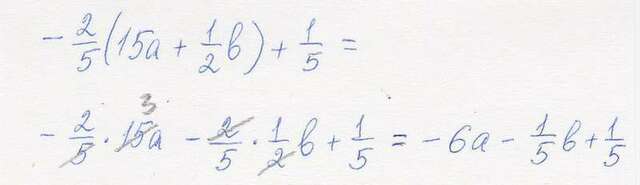 - 2/5 (15a + 1/2 b) + 1/5 =
3
- 2/5 · 15a - 2/5 · 1/2 b + 1/5 = -6a - 1/5 b + 1/5